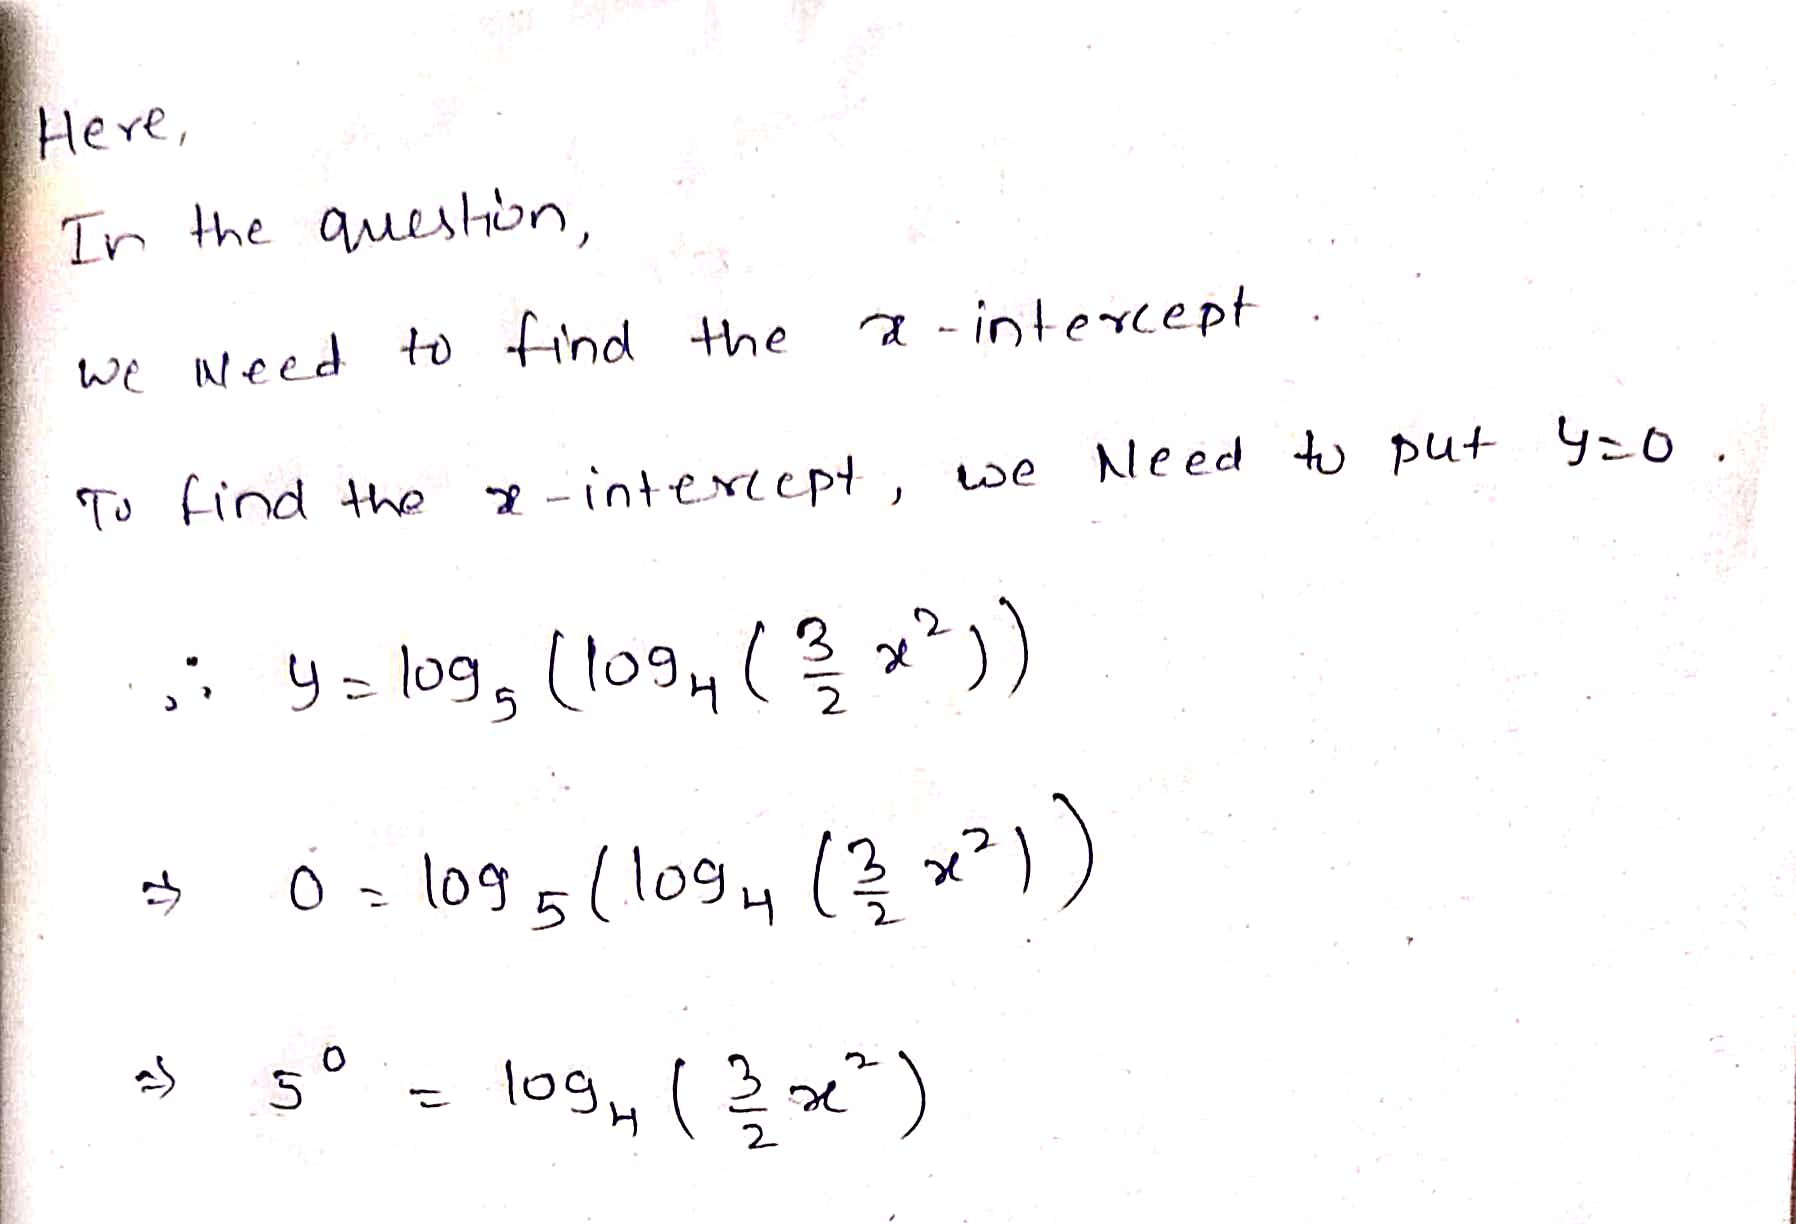 Here,
In the question,
we Need to find the x-intercept.
To find the x-intercept, we Need to put y=0.
∴ y = log₅ (log₄ (3/2 x²))
⇒ 0 = log₅ (log₄ (3/2 x²))
⇒ 5⁰ = log₄ (3/2 x²)